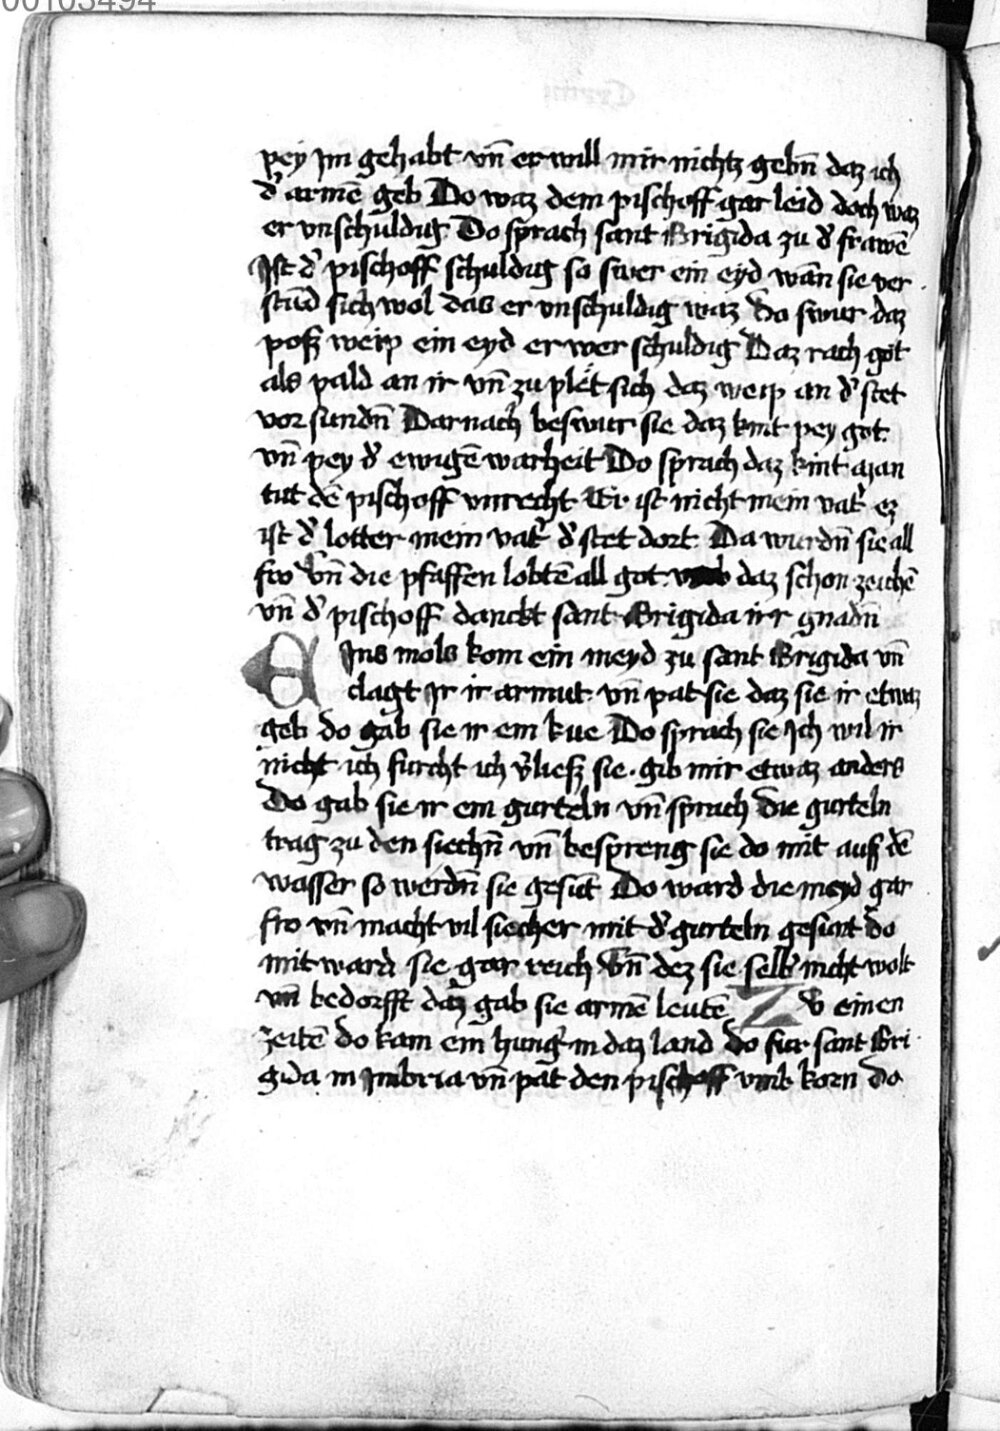 00103494
pey Im gehabt vn̄ er will mir nichtz gebn̄ daz ich
d' armē geb Do waz dem pischoff gar leid doch waz
er vnschuldig Do sprach sant Brigida zu d' frawē
Ist d' pischoff schuldig so swer ein eyd wan sie ver
stūd sich wol das er vnschuldig waz Do swur daz
poß weip ein eyd er wer schuldig Daz rach got
als pald an ir vn̄ zuplet sich daz weip an d' stet
vor sundn̄ Darnach beswur sie daz kint pey got
vn̄ pey d' ewigē warheit Do sprach daz kint man
tut dē pischoff vnrecht Er ist nicht mein vat' ez
ist d' lotter mein vat' d' stet dort Da wurdn̄ sie all
fro vn̄ die pfaffen lobtē all got daz schon zeichē
vn̄ d' pischoff danckt sant Brigida irr gnadn̄
EIns mols kom ein meyd zu sant Brigida vn̄
clagt Ir ir armut vn̄ pat sie daz sie ir etwaz
geb do gab sie ir ein kue Do sprach sie Ich wil ir
nicht ich furcht ich v'ließ sie. gib mir etwaz anders
Do gab sie ir ein gurteln vn̄ sprach Die gurteln
trag zu den siechn̄ vn̄ bespreng sie do mit auß dē
wasser so werdn̄ sie gesūt Do ward die meyd gar
fro vn̄ macht vil siecher mit d' gurteln gesunt Do
mit ward sie gar reich Vn̄ dez sie selb nicht wolt
vn̄ bedorfft daz gab sie armē leutē Zv einen
zeitē do kam ein hung' in daz land do fur sant Bri
gida in Imbria vn̄ pat den pischoff vmb korn do